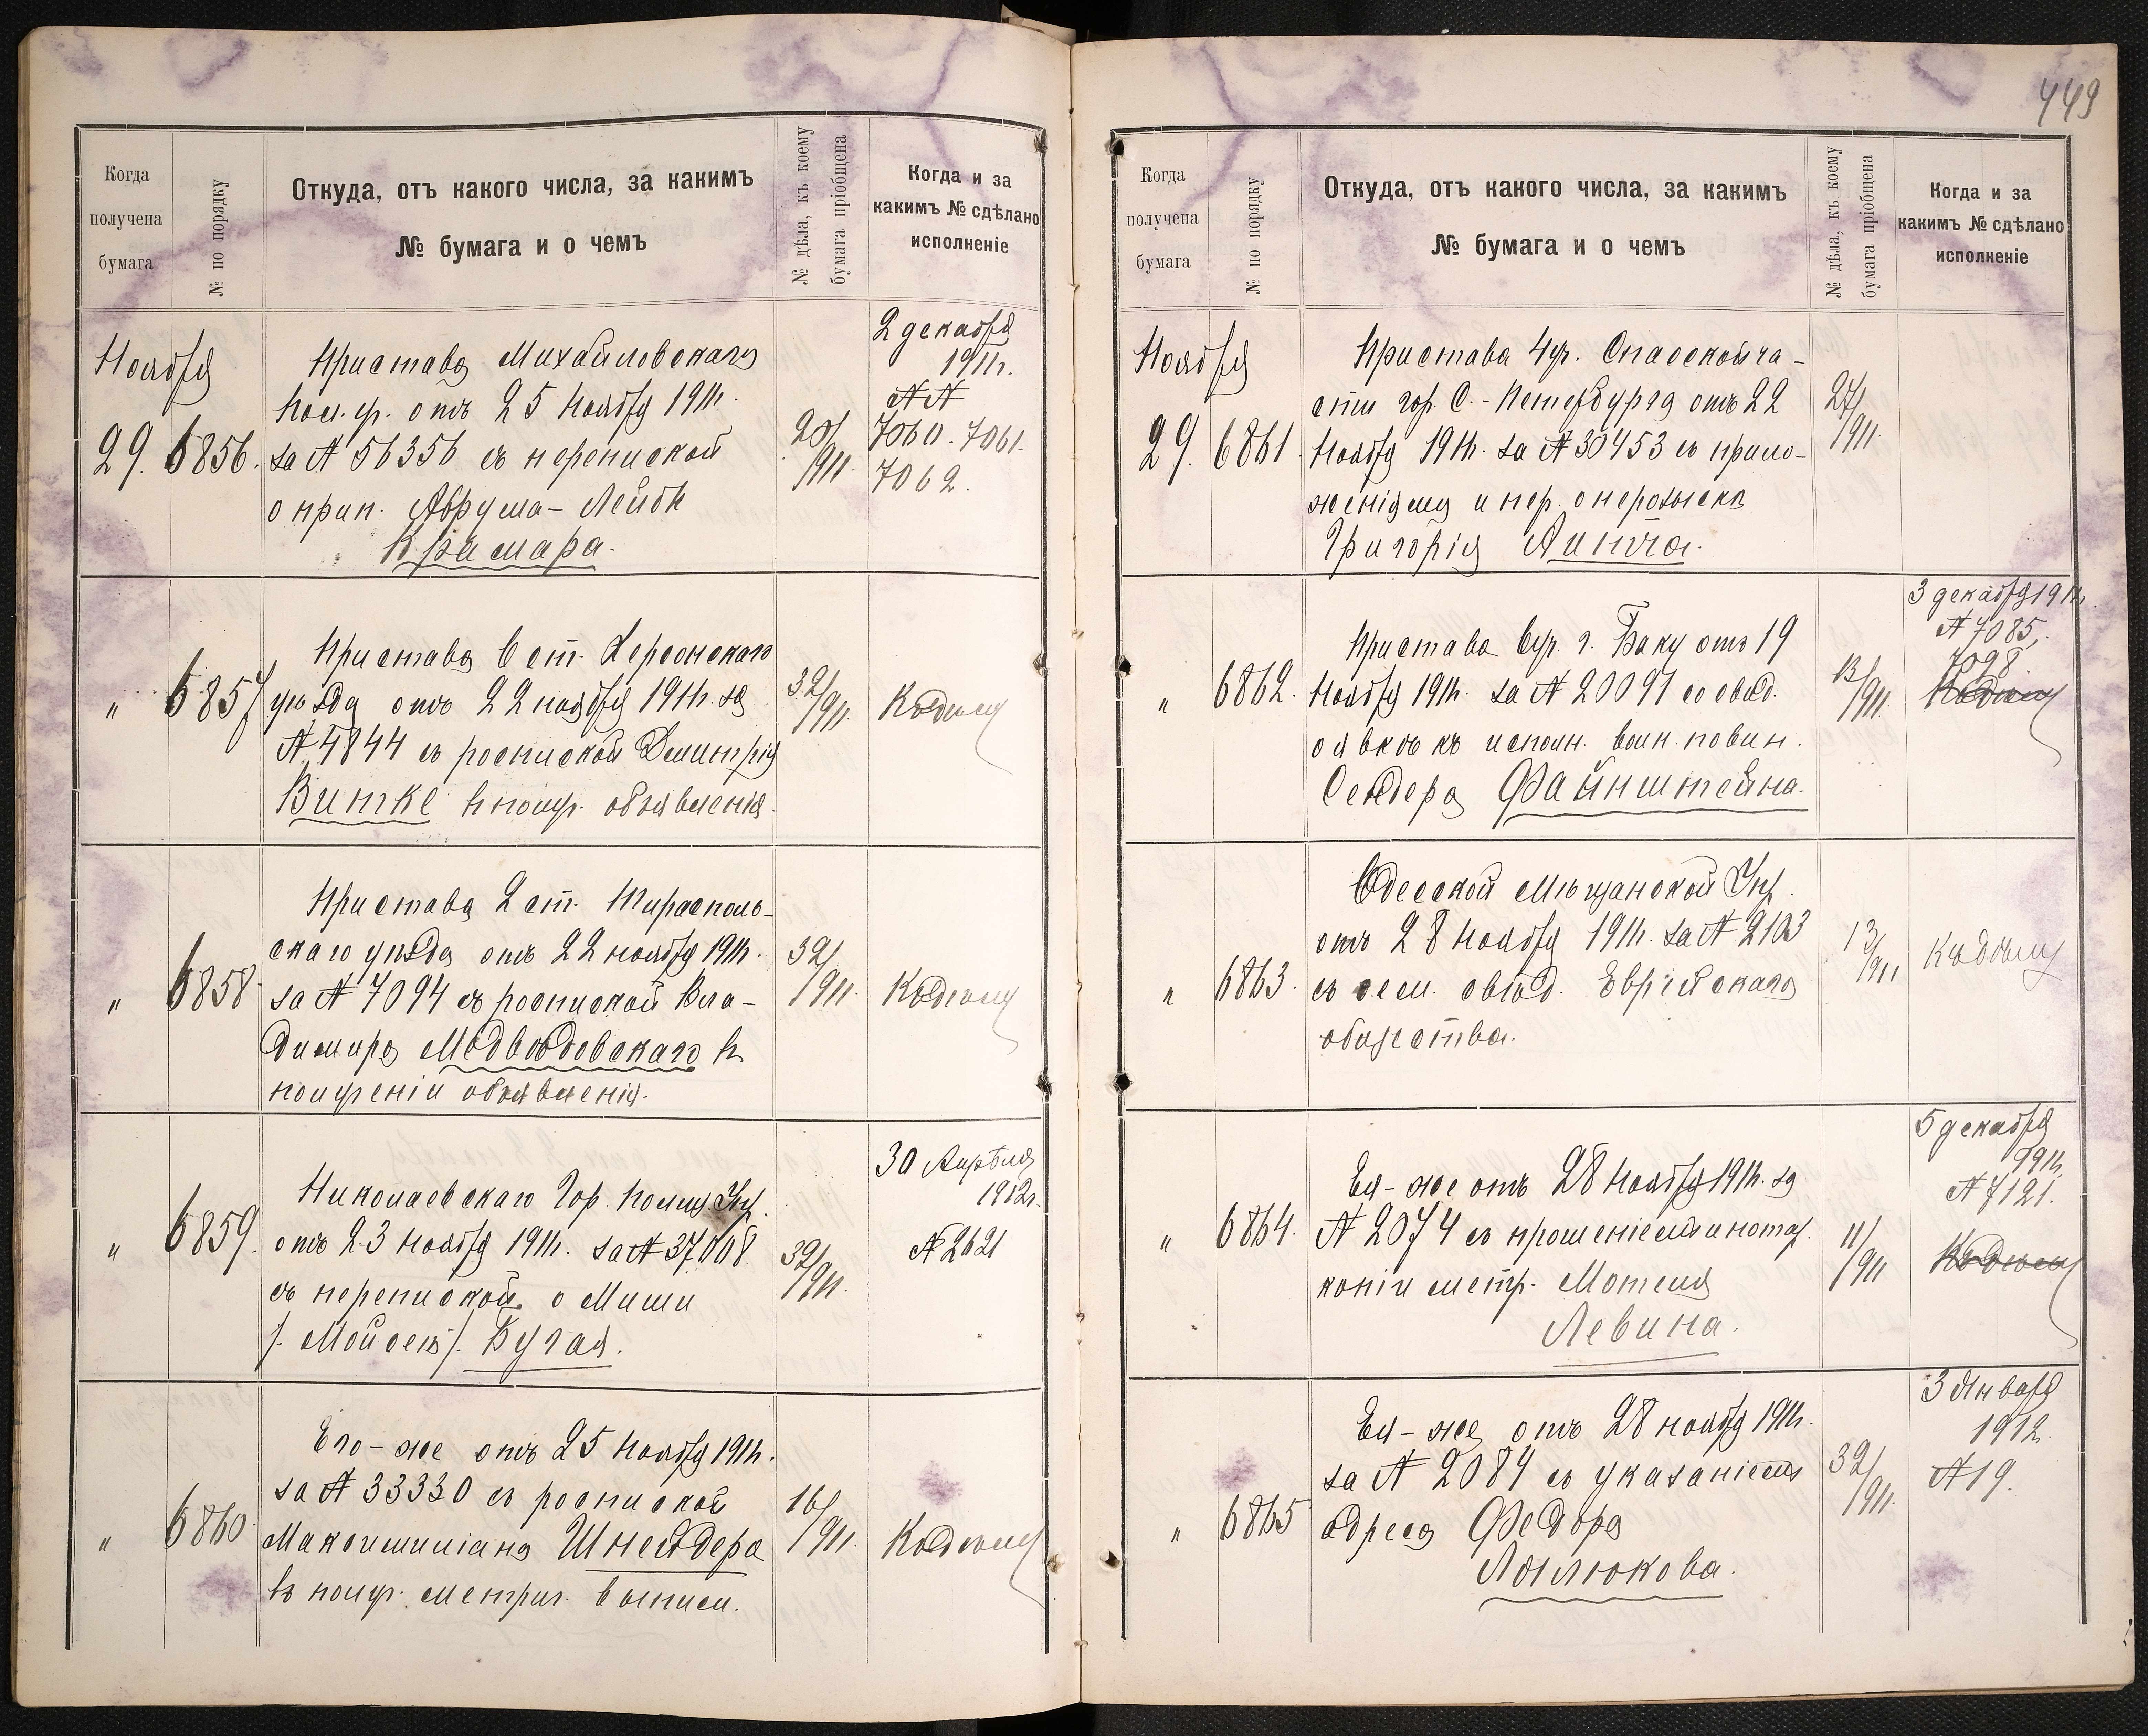 449
Когда
получена
бумага
№ по порядку
Откуда, отъ какого числа, за какимъ
№ бумага и о чемъ
№ дѣла, къ коему
бумага пріобщена
Когда и за
какимъ № сдѣлано
исполненіе
Ноября
29.
6856.
Пристава Михайловскаго
Пол. уч. отъ 25 Ноября 1911г.
за № 56356 съ перепиской
о прип. Абрума-Лейбы
Крамара.
20/911.
2 декабря
1911г.
№№
7060. 7061.
7062.
"
6857
Пристава 6 ст. Херсонскаго
уѣзда отъ 22 ноября 1911г. за
№ 4844 съ роспиской Дмитрія
Витке въ получ. объявленія.
32/911.
Къ дѣлу
"
6858
Пристава 2 ст. Тирасполь-
скаго уѣзда отъ 22 ноября 1911г.
за № 7094 съ роспиской Вла-
диміра Медвѣдовскаго въ
полученіи объявленія.
32/911.
Къ дѣлу
"
6859.
Николаевскаго Гор. Полиц. Упр.
отъ 23 Ноября 1911г. за № 37008
съ перепиской о Миши
/. Мойсей /. Бугая.
32/911.
30 Апрѣля
1912г.
№ 2621
"
6860
Его-же отъ 25 Ноября 1911г.
за № 33330 съ роспиской
Максимиліана Шнейдера
въ получ. метрич. выписи.
16/911.
Къ дѣлу
Когда
получена
бумага
№ по порядку
Откуда, отъ какого числа, за какимъ
№ бумага и о чемъ
№ дѣла, къ коему
бумага пріобщена
Когда и за
какимъ № сдѣлано
исполненіе
Ноября
29.
6861
Пристава 4 уч. Спасской ча-
сти гор. С.-Петербурга отъ 22
Ноября 1911г. за № 30453 съ прило-
женіями и пер. о нерозыскѣ
Григорія
27/911.
"
6862.
Пристава 6 уч. г. Баку отъ 19
Ноября 1911г. за № 20097 со свѣд.
о явкѣ къ исполн. воин. повин.
Сендера Файнштейна.
13/911.
3 декабря 1911г.
№ 7085,
7098.
Къ дѣлу
"
6863.
Одесской Мѣщанской Упр.
отъ 28 Ноября 1911г. за № 2103
съ сем. свѣд. Еврейскаго
общества.
13/911
Къ дѣлу
"
6864.
Ея-же отъ 28 Ноября 1911г. за
№ 2074 съ прошеніемъ и нотар.
копіи метр. Мотеля
Левина.
11/911
5 декабря
1911г.
№ 7121.
Къ дѣлу
"
6865
Ея-же отъ 28 ноября 1911г.
за № 2089 съ указаніемъ
адреса Федора
32/911.
3 Января
1912.
№ 19.